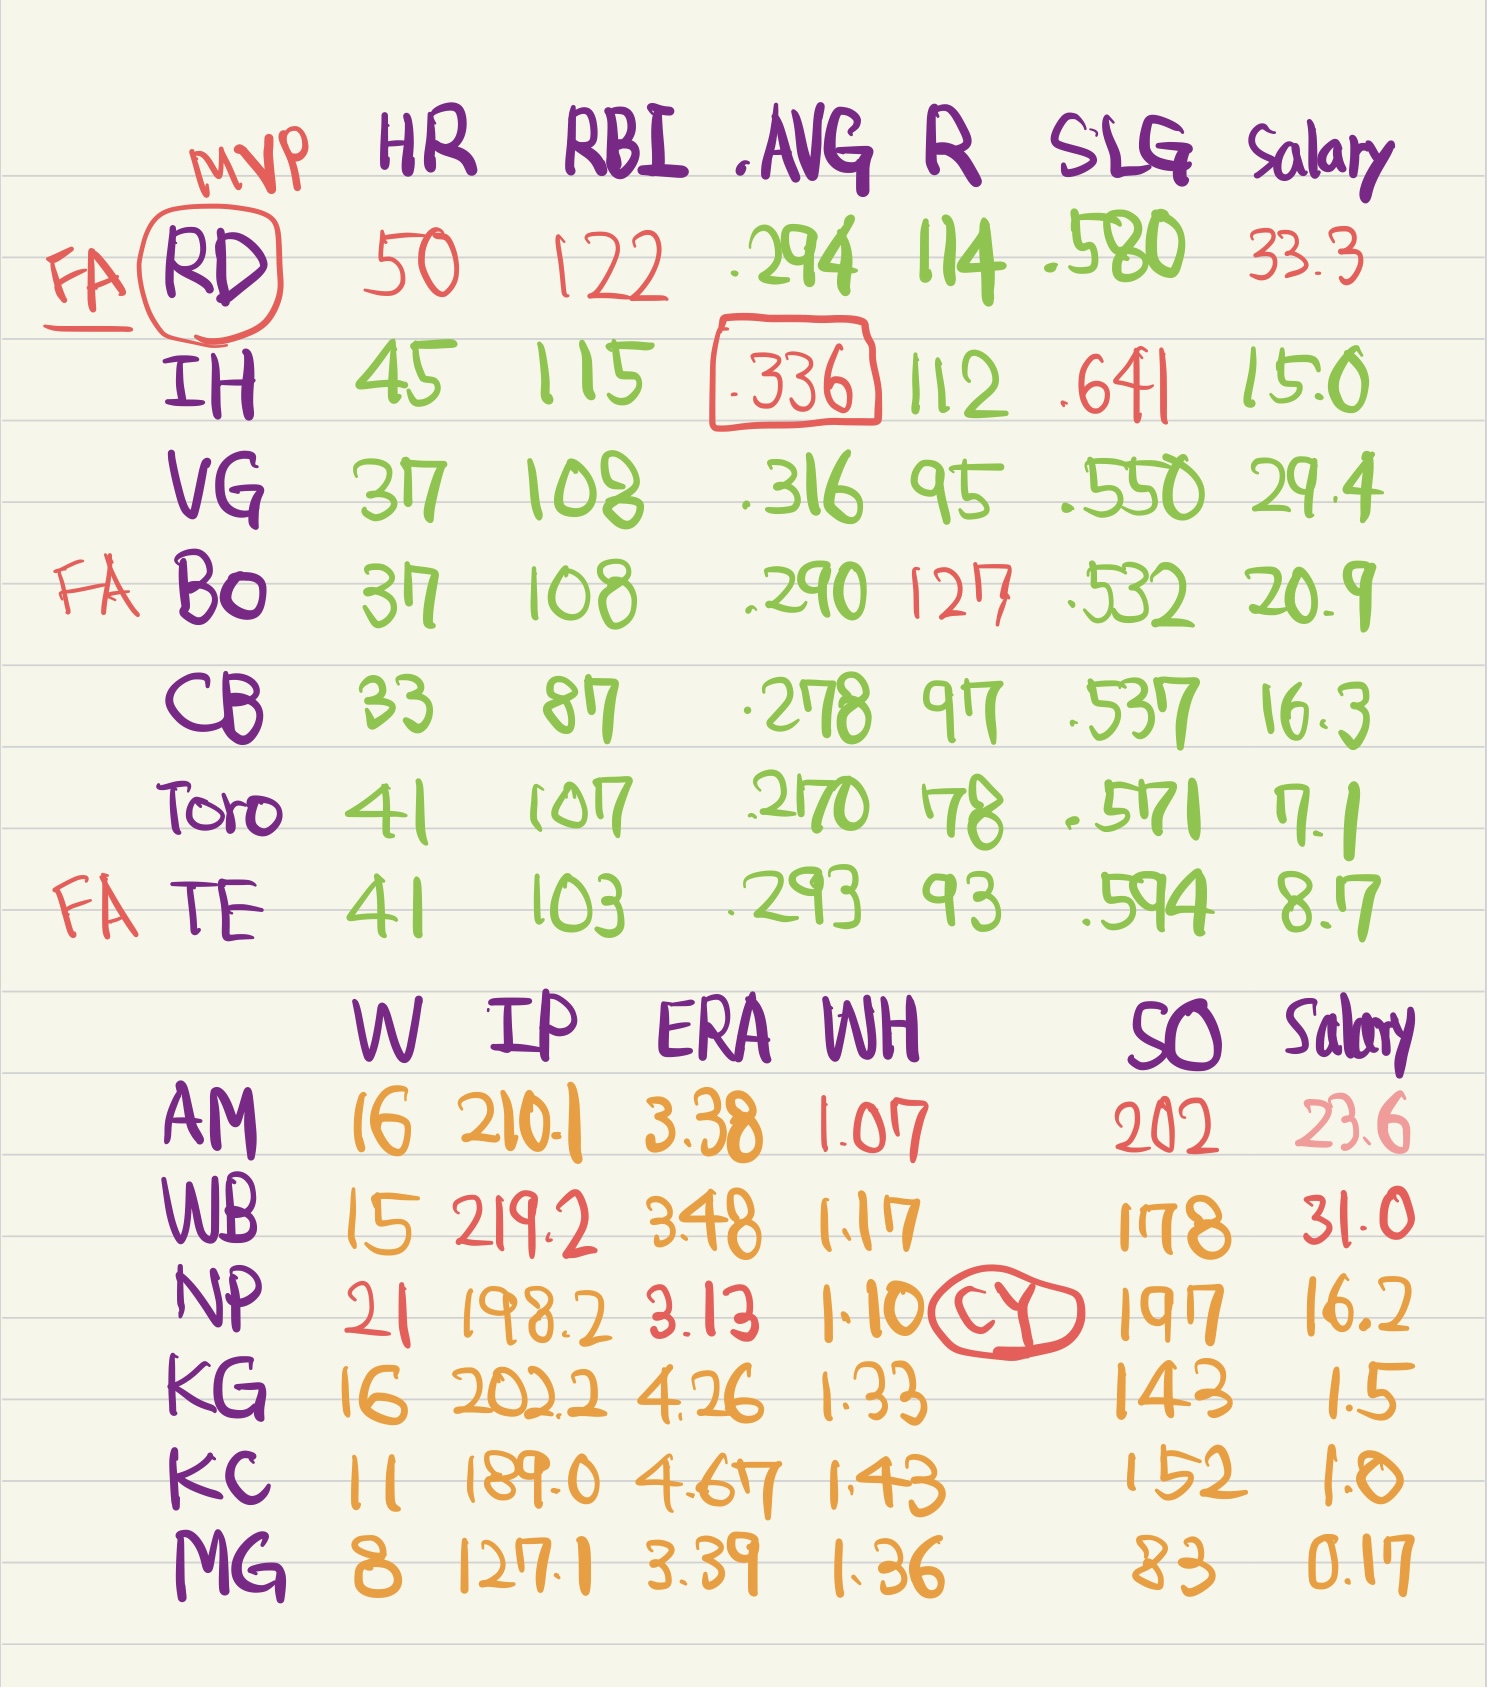 MVP HR RBI .AVG R SLG Salary
FA RD 50 122 .294 114 .580 33.3
IH 45 115 .336 112 .641 15.0
VG 37 108 .316 95 .550 29.4
FA BO 37 108 .290 127 .532 20.9
CB 33 87 .278 97 .537 16.3
Toro 41 107 .270 78 .571 7.1
FA TE 41 103 .293 93 .594 8.7
W IP ERA WH SO Salary
AM 16 210.1 3.38 1.07 202 23.6
WB 15 219.2 3.48 1.17 178 31.0
NP 21 198.2 3.13 1.10 CY 197 16.2
KG 16 202.2 4.26 1.33 143 1.5
KC 11 189.0 4.67 1.43 152 1.0
MG 8 127.1 3.39 1.36 83 0.17